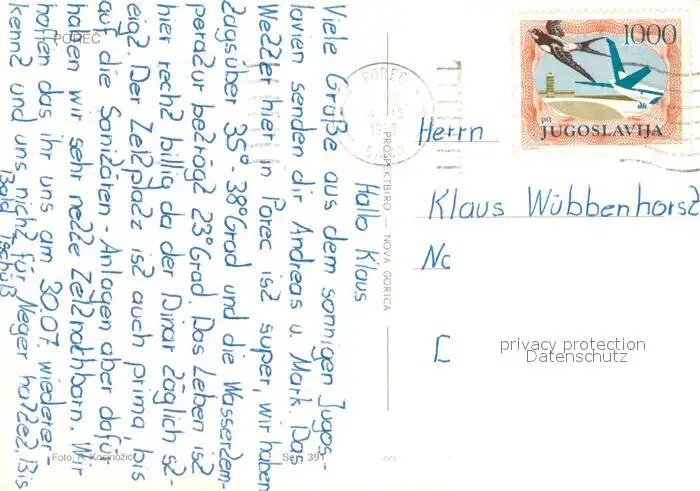 POREC
Hallo Klaus
Viele Grüße aus dem sonnigen Jugos-
lavien senden dir Andreas u. Mark. Das
Wetter hier in Porec ist super, wir haben
Tagsüber 35°-38°Grad und die Wassertem-
peratur beträgt 23°Grad. Das Leben ist
hier recht billig da der Dinar täglich st-
eigt. Der Zeltplatz ist auch prima, bis
auf die Sanitären-Anlagen aber dafür
haben wir sehr nette Zeltnachbarn. Wir
hoffen das ihr uns am 30.07. wiederer
kennt und uns nicht für Neger haltet. Bis
Bald Tschüß
Foto: R. Kosinožic
391
PROSPEKTBIRO - NOVA GORICA
POREC
1000
ptt
JUGOSLAVIJA
Herrn
Klaus Wübbenhorst
privacy protection
Datenschutz